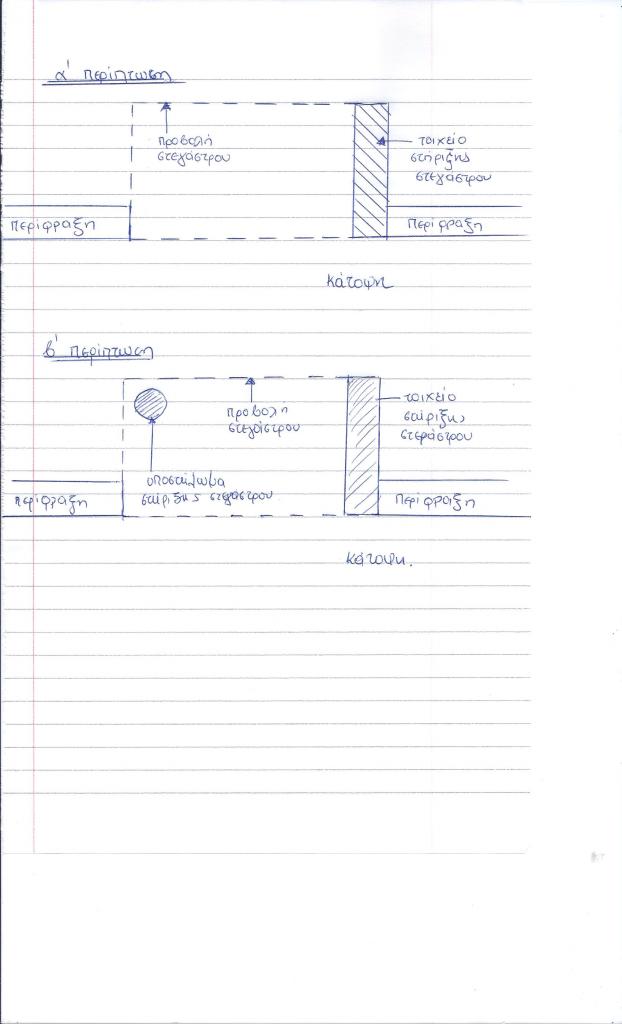 α' περίπτωση
προβολή
στεγάστρου
τοιχείο
στήριξης
στεγάστρου
περίφραξη
περίφραξη
κάτοψη
β' περίπτωση
προβολή
στεγάστρου
τοιχείο
στήριξης
στεγάστρου
υποστύλωμα
στήριξης στεγάστρου
περίφραξη
περίφραξη
κάτοψη.